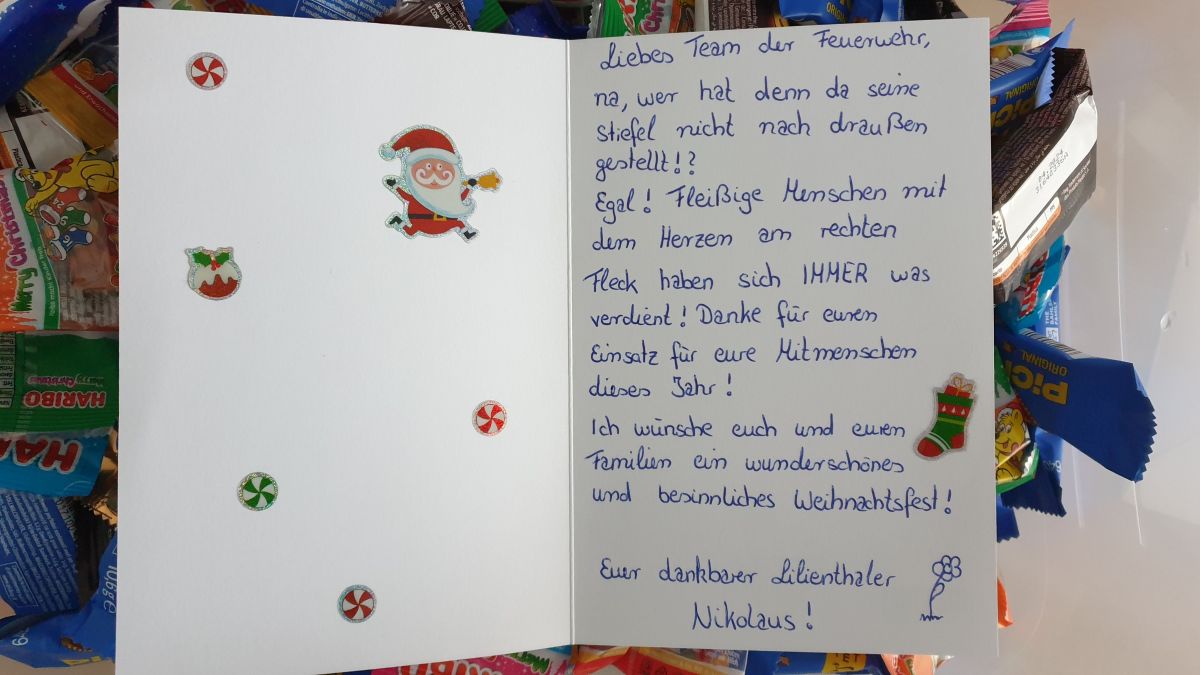 Liebes Team der Feuerwehr,
na, wer hat denn da seine
Stiefel nicht nach draußen
gestellt!?
Egal! Fleißige Menschen mit
dem Herzen am rechten
Fleck haben sich IMMER was
verdient! Danke für euren
Einsatz für eure Mitmenschen
dieses Jahr!
Ich wünsche euch und euren
Familien ein wunderschönes
und besinnliches Weihnachtsfest!
Euer dankbarer Lilienthaler
Nikolaus!
Merry Christmas
HARIBO
Merry Christmas
HARI
PiCK
ORIGINAL
PiC
ORIGINAL